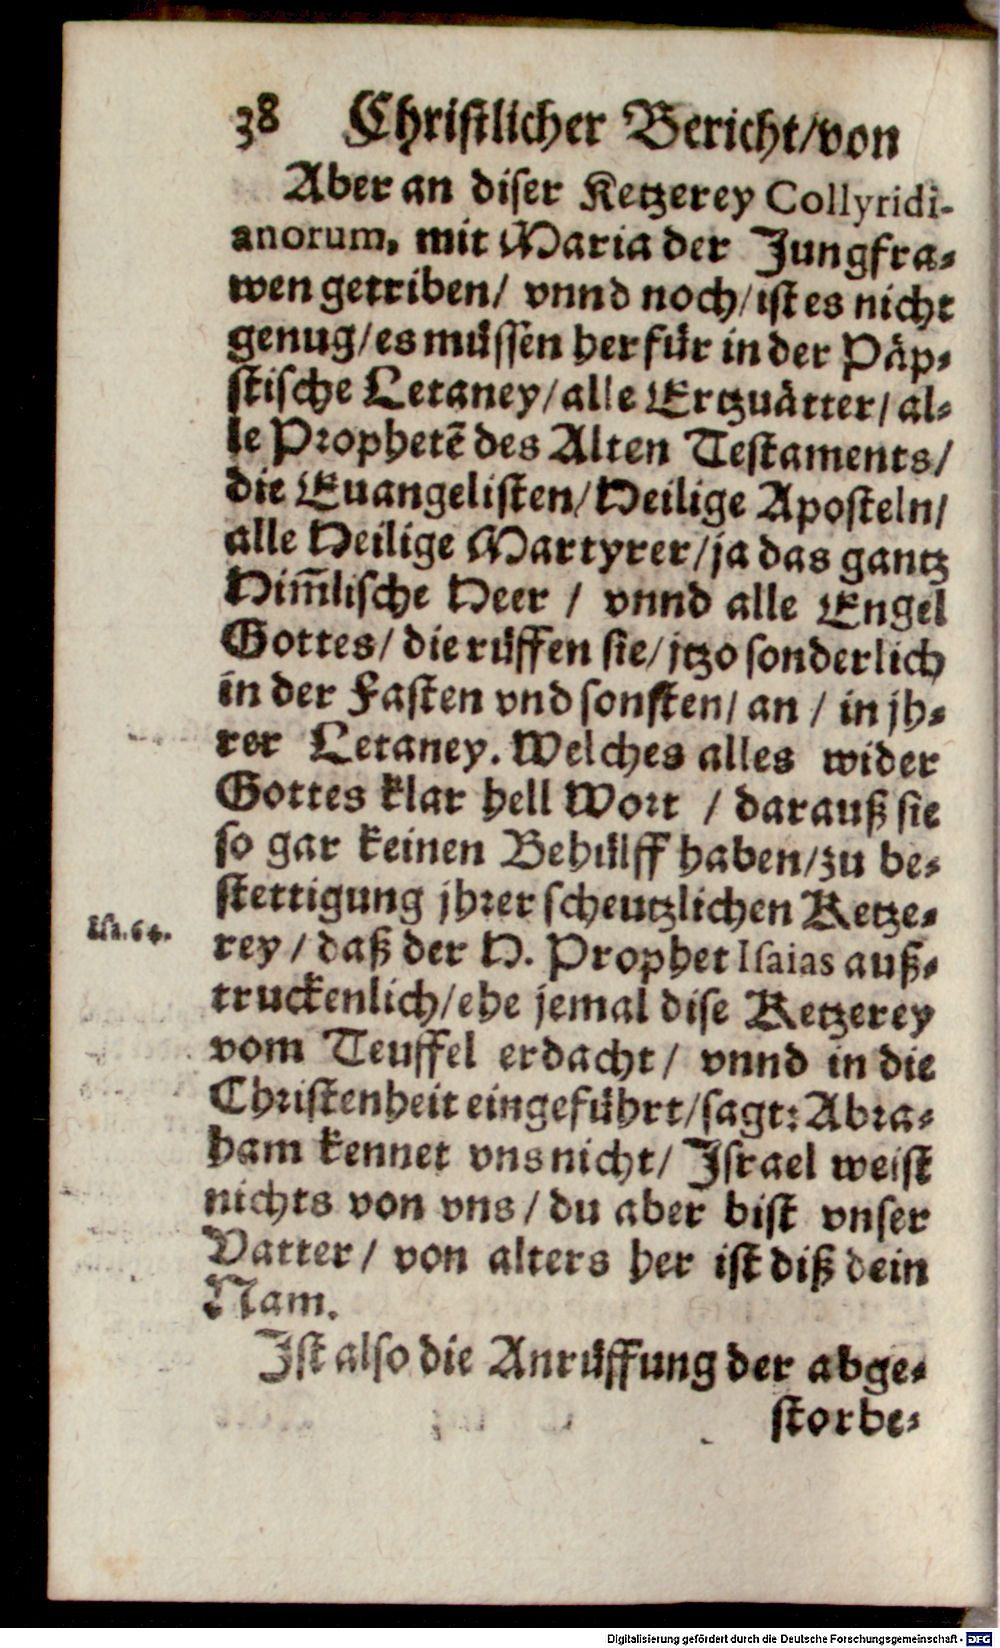 38 Christlicher Bericht/von
Aber an diser Ketzerey Collyridi-
anorum, mit Maria der Jungfra-
wen getriben/ vnnd noch/ist es nicht
genug/es müssen herfür in der Päp-
stische Letaney/alle Ertzuätter/al-
le Prophetē des Alten Testaments/
die Euangelisten/Heilige Aposteln/
alle Heilige Martyrer/ja das gantz
Him̄lische Heer / vnnd alle Engel
Gottes/ die rüffen sie/ jtzo sonderlich
in der Fasten vnd sonsten/ an / in jh-
rer Letaney. Welches alles wider
Gottes klar hell Wort / darauß sie
so gar keinen Behülff haben/zu be-
stettigung jhrer scheutzlichen Ketze-
Isa.64. rey/ daß der H. Prophet Isaias auß-
truckenlich/ehe jemal dise Ketzerey
vom Teuffel erdacht/ vnnd in die
Christenheit eingeführt/sagt: Abra-
ham kennet vns nicht/ Israel weist
nichts von vns/ du aber bist vnser
Vatter/ von alters her ist diß dein
Nam.
Ist also die Anrüffung der abge-
storbe-
Digitalisierung gefördert durch die Deutsche Forschungsgemeinschaft - DFG